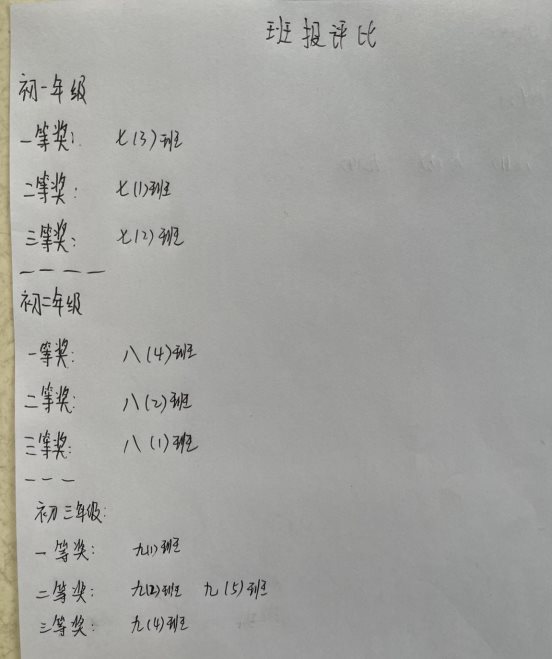 班报评比
初一年级
一等奖: 七(3)班
二等奖: 七(1)班
三等奖: 七(2)班
————
初二年级
一等奖: 八(4)班
二等奖: 八(2)班
三等奖: 八(1)班
———
初三年级:
一等奖: 九(1)班
二等奖: 九(2)班 九(5)班
三等奖: 九(4)班